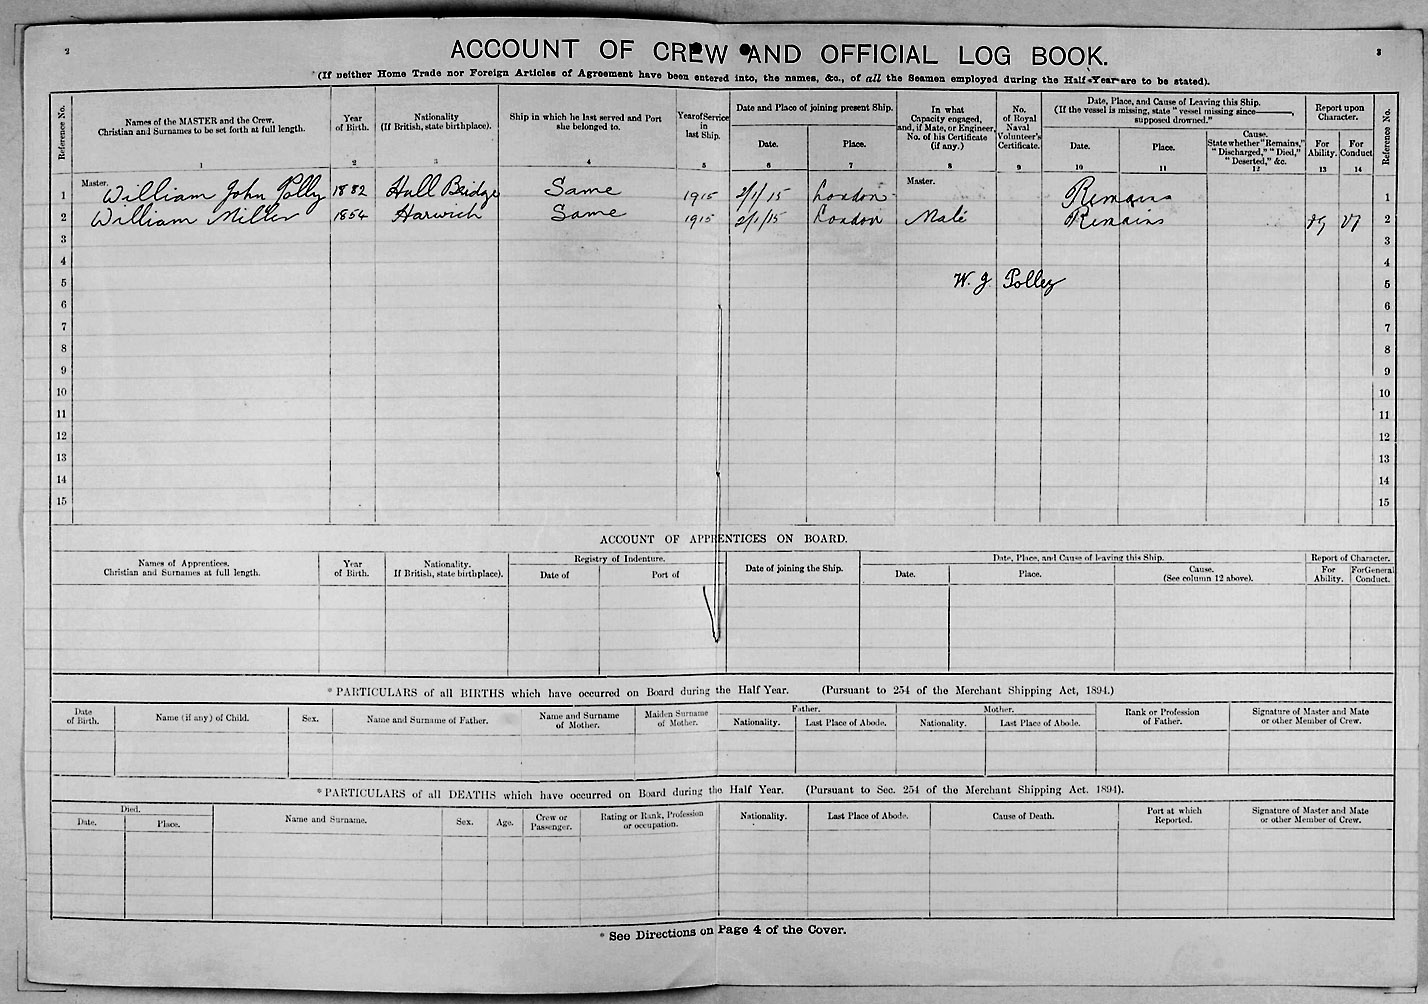 2
3
ACCOUNT OF CREW AND OFFICIAL LOG BOOK.
*(If neither Home Trade nor Foreign Articles of Agreement have been entered into, the names, &c., of all the Seamen employed during the Half-Year are to be stated).
Reference No. Names of the MASTER and the Crew. Christian and Surnames to be set forth at full length. Year of Birth. Nationality (If British, state birthplace). Ship in which he last served and Port she belonged to. Year of Service in last Ship. Date and Place of joining present Ship. Date. Place. In what Capacity engaged, and, if Mate, or Engineer, No. of his Certificate (if any.) No. of Royal Naval Volunteer's Certificate. Date, Place, and Cause of Leaving this Ship. (If the vessel is missing, state "vessel missing since supposed drowned." Date. Place. Cause. State whether "Remains," "Discharged," "Died," "Deserted," &c. Report upon Character. For Ability. For Conduct Reference No.
1 2 3 4 5 6 7 8 9 10 11 12 13 14
1 Master. William John Polly 1882 Hull Bridge Same 1915 2/1/15 London Master. Remains 1
2 William Miller 1854 Harwich Same 1915 2/1/15 London Mate Remains VG VG 2
3 3
4 4
5 W. J. Polley 5
6 6
7 7
8 8
9 9
10 10
11 11
12 12
13 13
14 14
15 15
ACCOUNT OF APPRENTICES ON BOARD.
Names of Apprentices. Christian and Surnames at full length. Year of Birth. Nationality. If British, state birthplace). Registry of Indenture. Date of Port of Date of joining the Ship. Date, Place, and Cause of leaving this Ship. Date. Place. Cause. (See column 12 above). Report of Character. For Ability. For General Conduct.
*PARTICULARS of all BIRTHS which have occurred on Board during the Half Year. (Pursuant to 254 of the Merchant Shipping Act, 1894.)
Date of Birth. Name (if any) of Child. Sex. Name and Surname of Father. Name and Surname of Mother. Maiden Surname of Mother. Father. Nationality. Last Place of Abode. Mother. Nationality. Last Place of Abode. Rank or Profession of Father. Signature of Master and Mate or other Member of Crew.
*PARTICULARS of all DEATHS which have occurred on Board during the Half Year. (Pursuant to Sec. 254 of the Merchant Shipping Act. 1894).
Died. Date. Place. Name and Surname. Sex. Age. Crew or Passenger. Rating or Rank, Profession or occupation. Nationality. Last Place of Abode. Cause of Death. Port at which Reported. Signature of Master and Mate or other Member of Crew.
* See Directions on Page 4 of the Cover.